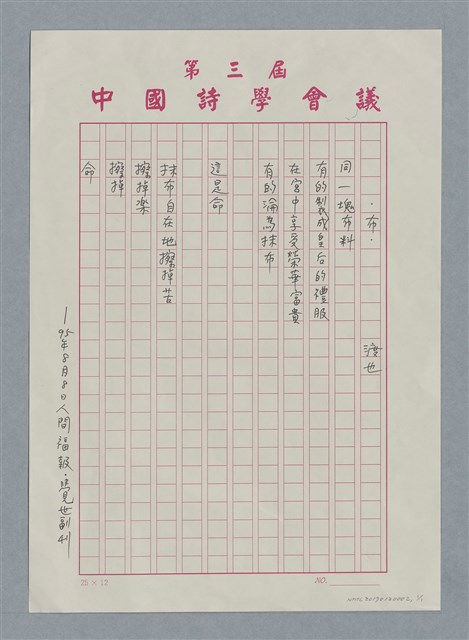 第三屆
中國詩學會議
·布·
渡也
同一塊布料
有的製成皇后的禮服
在宮中享受榮華富貴
有的淪為抹布
這是命
抹布自在地擦掉苦
擦掉樂
擦掉
命
—95年8月8日人間福報·覺世副刊
25×12
NO.